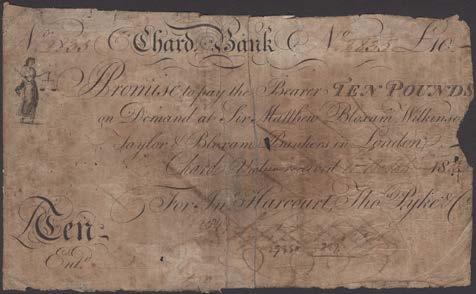 No 835 Chard Bank No 835 £10
Promise to pay the Bearer TEN POUNDS
on Demand at Sir Matthew Bloxam Wilkinson
Taylor & Bloxam Bankers in London
Chard Value received 18
For Jn Harcourt, Thos Pyke & Co
Ten
Entd